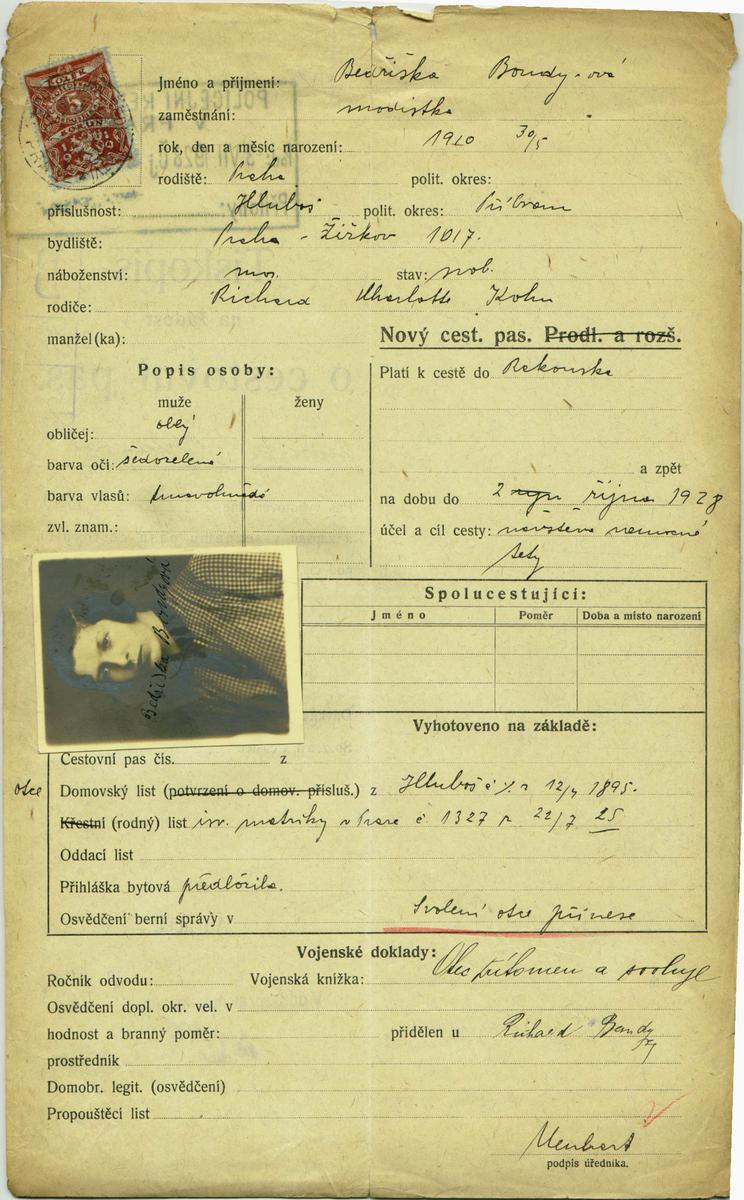 5
KORUN
Jméno a příjmení: Bedřiška Bondy-ová
zaměstnání: modistka
rok, den a měsíc narození: 1910 30/5
rodiště: Praha polit. okres:
příslušnost: Hluboš polit. okres: Příbram
bydliště: Praha - Žižkov 1017.
náboženství: mos. stav: svob.
rodiče: Richard Charlotte Kohn
manžel(ka):
Nový cest. pas. Prodl. a rozš.
Popis osoby:
muže ženy
obličej: oblý
barva očí: šedozelené
barva vlasů: tmavohnědé
zvl. znam.:
Platí k cestě do Rakouska
a zpět
na dobu do 2 října 1928
účel a cíl cesty: návštěva nemocné
tety
Bedřiška Bondyová
Spolucestující:
Jméno Poměr Doba a místo narození
Vyhotoveno na základě:
Cestovní pas čís. z
otce Domovský list (potvrzení o domov. přísluš.) z Hluboš č 1. z 12/4 1895.
Křestní (rodný) list isr. matriky v Praze č. 1327 z 22/7 25
Oddací list
Přihláška bytová předložila.
Osvědčení berní správy v Svolení otce přinese
Vojenské doklady:
Ročník odvodu: Vojenská knížka: Otec přítomen a svoluje
Osvědčení dopl. okr. vel. v
hodnost a branný poměr: přidělen u Richard Bondy
prostředník
Domobr. legit. (osvědčení)
Propouštěcí list
podpis úředníka.